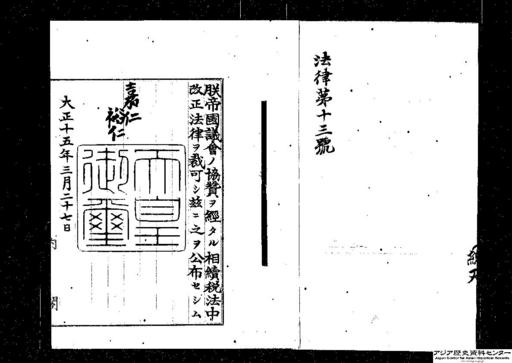 法律第十三號
朕帝國議會ノ協贊ヲ經タル相續稅法中
改正法律ヲ裁可シ玆ニ之ヲ公布セシム
嘉仁
裕仁
天皇御璽
大正十五年三月二十七日
內閣
アジア歴史資料センター
Japan Center for Asian Historical Records